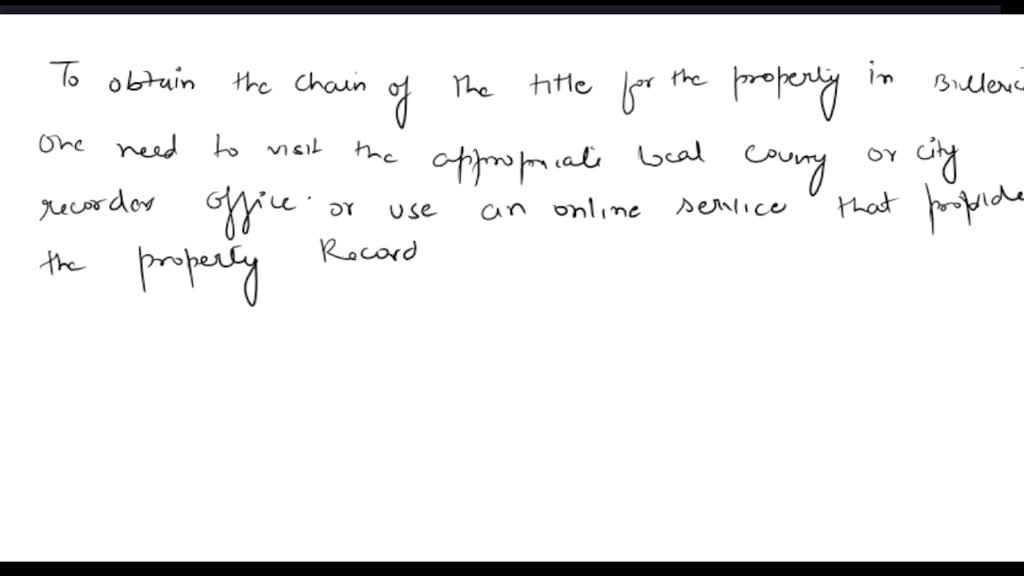 To obtain the chain of the title for the property in Billeric
one need to visit the appropriate local county or city
recorder office. or use an online service that provide
the property Record